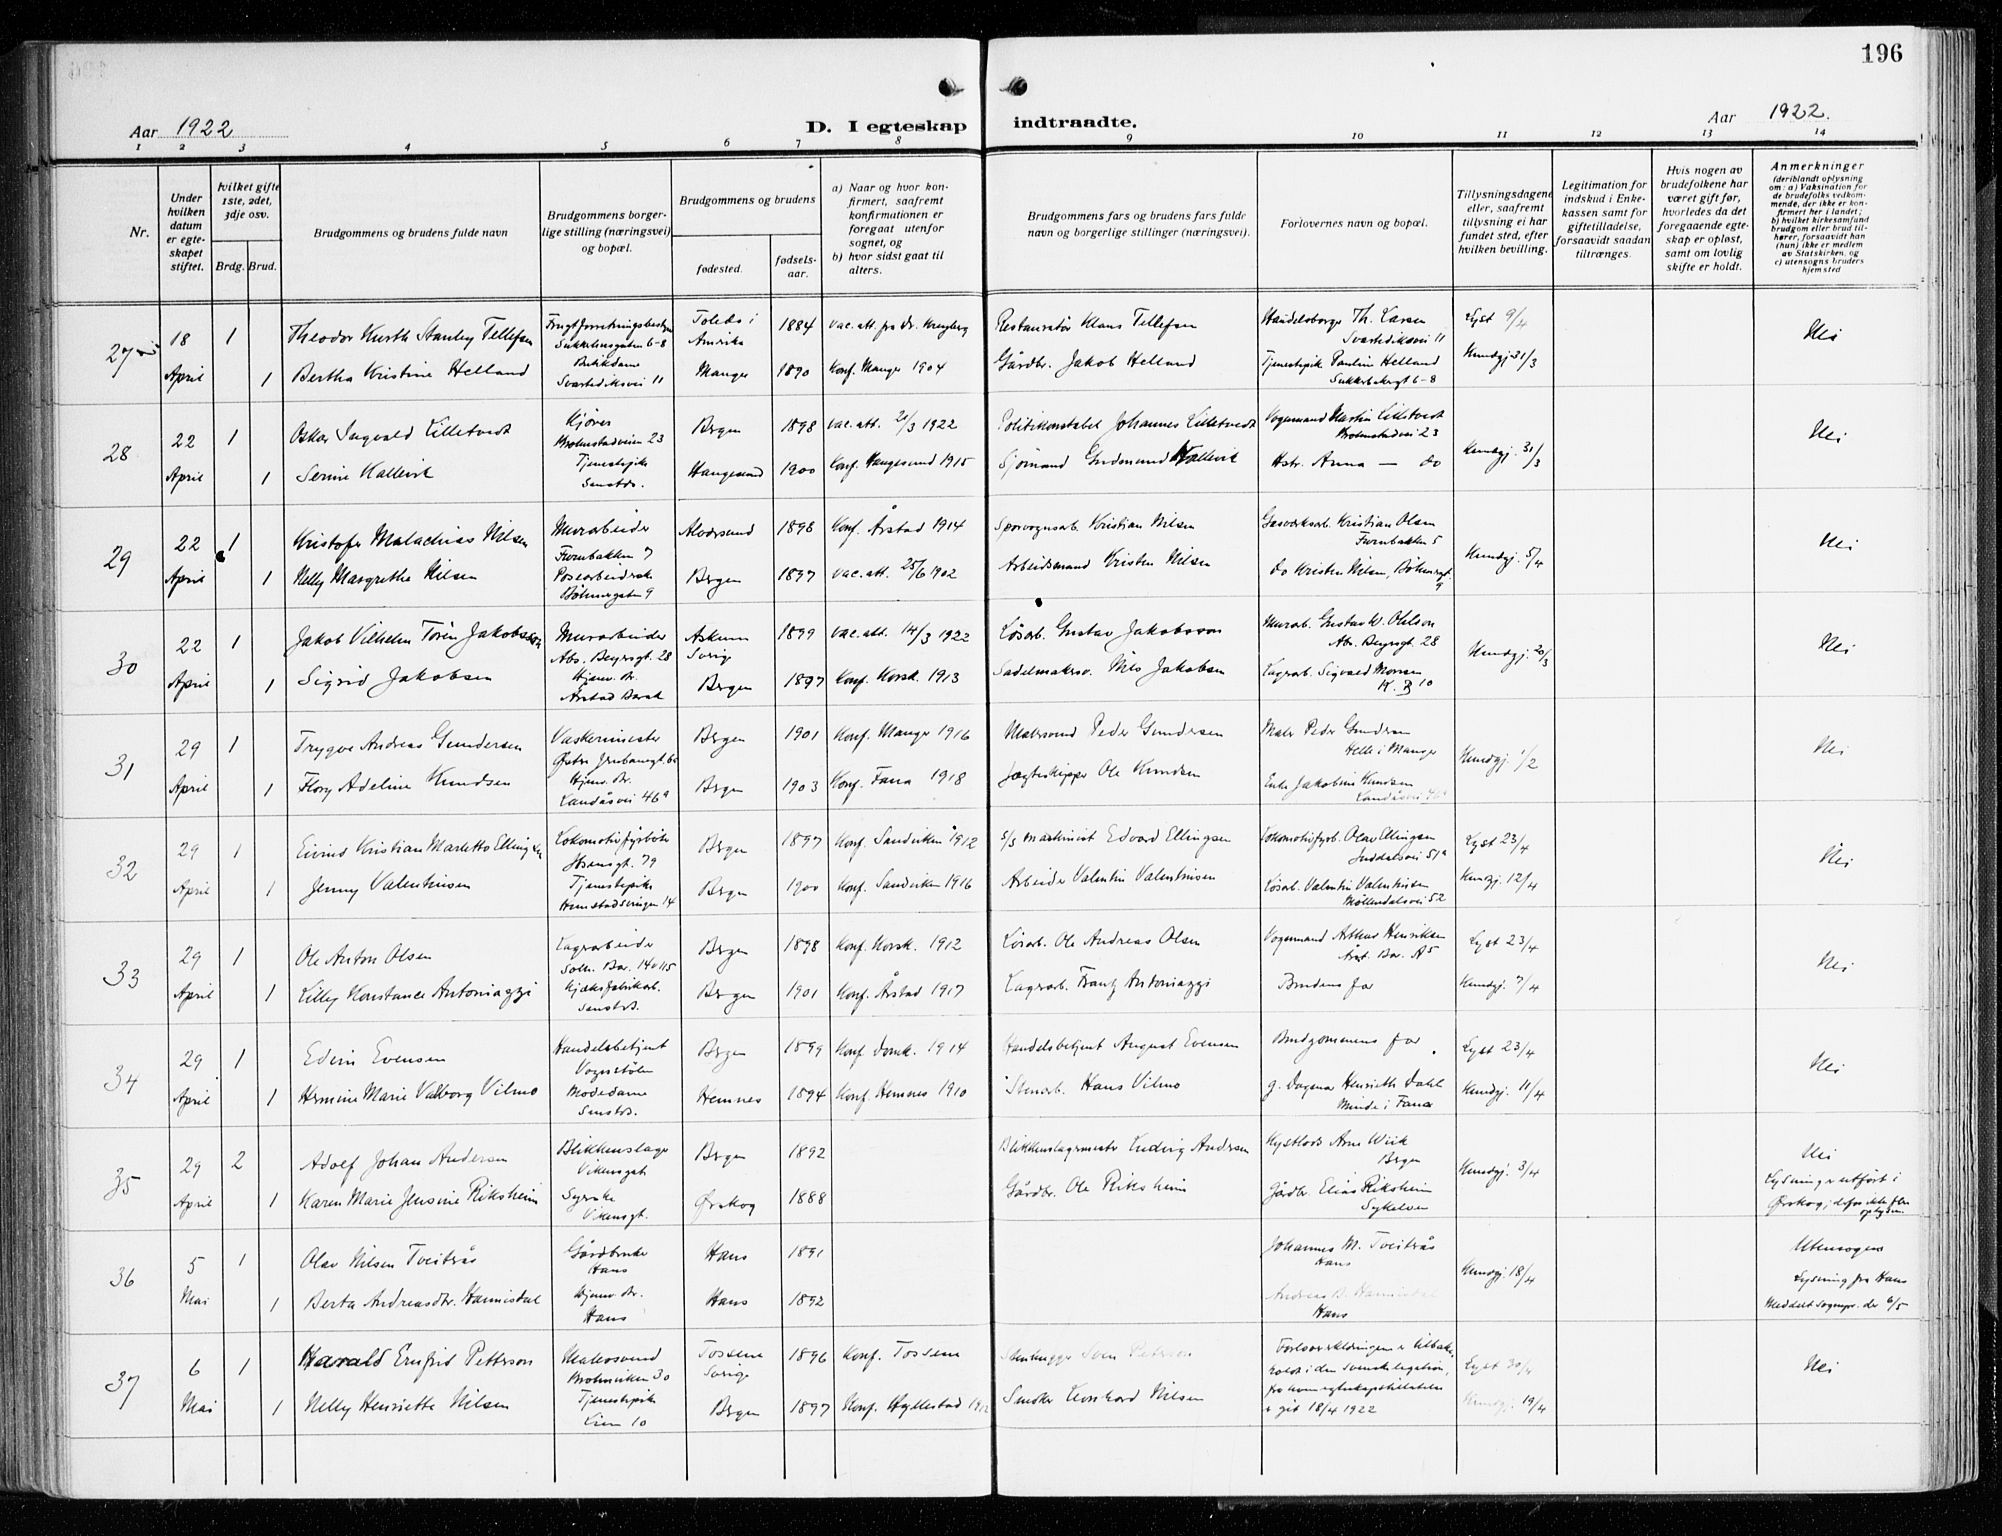 196
Aar 1922
D. I egteskap indtraadte.
Aar 1922.
1 2 3 4 5 6 7 8 9 10 11 12 13 14
Nr.
Under hvilken datum er egteskapet stiftet.
hvilket gifte 1ste, 2det, 3dje osv.
Brdg. Brud.
Brudgommens og brudens fulde navn
Brudgommens borgerlige stilling (næringsvei) og bopæl.
Brudgommens og brudens
fødested.
fødselsaar.
a) Naar og hvor konfirmert, saafremt konfirmationen er foregaat utenfor sognet, og
b) hvor sidst gaat til alters.
Brudgommens fars og brudens fars fulde navn og borgerlige stillinger (næringsvei).
Forlovernes navn og bopæl.
Tillysningsdagene eller, saafremt tillysning ei har fundet sted, efter hvilken bevilling.
Legitimation for indskud i Enkekassen samt for giftetilladelse, forsaavidt saadan tiltrænges.
Hvis nogen av brudefolkene har været gift før, hvorledes da det foregaaende egteskap er opløst, samt om lovlig skifte er holdt.
Anmerkninger (deriblandt oplysning om: a) Vaksination for de brudefolks vedkommende, der ikke er konfirmert her i landet; b) hvilket kirkesamfund brudgom eller brud tilhører, forsaavidt han (hun) ikke er medlem av Statskirken, og c) utensogns bruders hjemsted
27 18 April 1 Theodor Kurth Stanley Tellefsen Toledo i Amrika 1884 Restauratør Klaus Tellefsen Handelsborger Th. Larsen Svartediksvei 11 Lyst 9/4 Nei
1 Bertha Kristine Helland Butikdame Svartediksvei 11 Manger 1890 Konf. Manger 1904 Gårdbr. Jakob Helland Tjenestepik Pauline Helland Kundgj. 31/3
28 22 April 1 Oskar Ingvald Lilletvedt Kjører 23 Bergen 1898 vac. att. 20/3 1922 Politikonstabel Johannes Lilletvedt Vognmand Martin Lilletvedt 23 Kundgj. 31/3 Nei
1 Serine Kallevik Tjenestepike Samsteds. Haugesund 1900 Konf. Haugesund 1915 Sjømand Gudmund Kallevik Hstr. Anna — do
29 22 April 1 Kristofer Malachias Nilsen Murarbeider 7 Alversund 1898 Konf. Årstad 1914 Sporvognsarb. Kristian Nilsen Gasverksarb. Kristian Olsen 5 Kundgj. 5/4 Nei
1 Nelly Margrethe Nilsen Posearbeiderske Bøhmergaten 9 Bergen 1897 vac. att. 25/6 1902 Arbeidsmand Kristen Nilsen do Kristen Nilsen, Bøhmergt. 9
30 22 April 1 Jakob Vilhelm Torén Jakobsson Murarbeider Abs. Beyersgt. 28 Askum Sverig 1899 vac. att. 14/3 1922 Løsarb. Gustav Jakobsson Murarb. Gustav W. Ohlson Abs. Beyersgt 28 Kundgj. 20/3 Nei
1 Sigrid Jakobsen Hjem. Br. Årstad Barak Bergen 1897 Konf. Korsk. 1913 Sadelmakersv. Nils Jakobsen Lagerarb. Sigvald Monsen
31 29 April 1 Trygve Andreas Gundersen Vaskerimester Bergen 1901 Konf. Manger 1916 Malersvend Peder Gundersen Maler Peder Gundersen Helle i Manger Kundgj. 1/2 Nei
1 Flory Adeline Knudsen Hjem. Br. Landåsvei 46a Bergen 1903 Konf. Fana 1918 Jægteskipper Ole Knudsen Enke Jakobine Knudsen Landåsvei 46a
32 29 April 1 Eivind Kristian Marletto Ellingsen Lokomotivfyrbøter Ibsensgt. 79 Bergen 1897 Konf. Sandviken 1912 S/S maskinist Edvard Ellingsen Lokomotivfyrb. Olav Ellingsen Inddalsvei 51a Lyst 23/4 Nei
1 Jenny Valentinsen Tjenestepike 14 Bergen 1900 Konf. Sandviken 1916 Arbeider Valentin Valentinsen Løsarb. Valentin Valentinsen Møllendalsvei 52 Kundgj. 12/4
33 29 April 1 Ole Anton Olsen Lagerarbeider Bergen 1898 Konf. Korsk. 1912 Løsarb. Ole Andreas Olsen Vognmand Arthur Henriksen Årst. Bar. A5 Lyst 23/4 Nei
1 Lilly Konstance Antoniazzi Kjæksfabrikarb. Samsteds. Bergen 1901 Konf. Årstad 1917 Lagerarb. Frantz Antoniazzi Brudens far Kundgj. 7/4
34 29 April 1 Edvin Evensen Handelsbetjent Vognstølen Bergen 1899 Konf. Domk. 1914 Handelsbetjent August Evensen Brudgommens far Lyst 23/4 Nei
1 Hermine Marie Valborg Vilmo Modedame Samsteds. Hemnes 1894 Konf. Hemnes 1910 Stenarb. Hans Vilmo g. Dagmar Henriette Dahl Minde i Fana Kundgj. 11/4
35 29 April 2 Adolf Johan Andersen Blikkenslager Vikensgt. Bergen 1892 Blikkenslagermester Ludvig Andersen Kystlods Arne Wiik Bergen Kundgj. 3/4 Nei
1 Karen Marie Jensine Riksheim Syerske Vikensgt. Ørskog 1888 Gårdbr. Ole Riksheim Gårdbr. Elias Riksheim Sykelven Lysning er utført i Ørskog;
36 5 Mai 1 Olav Nilsen Tveiterås Gårdbruker Hans Hans 1891 Johannes M. Tveiterås Hans Kundgj. 18/4 Utensogns
1 Berta Andreasdtr. Hannisdal Hjem. Br. Hans Hans 1892 Andreas B. Hannisdal Hans Lysning fra Hans Meddelt sognepr. der 6/5
37 6 Mai 1 Harald Ernfrid Petterson Malersvend 30 Tossene Sverige 1896 Konf. Tossene Stenhugger Sven Peterson Forloverer­klæringen er tilbakeholdt i den svenske legation, Lyst 30/4 Nei
1 Nelly Henriette Nilsen Tjenestepike Lien 10 Bergen 1897 Konf. Hyllestad 1912 Smed Leonhard Nilsen er git 18/4 1922 Kundgj. 19/4